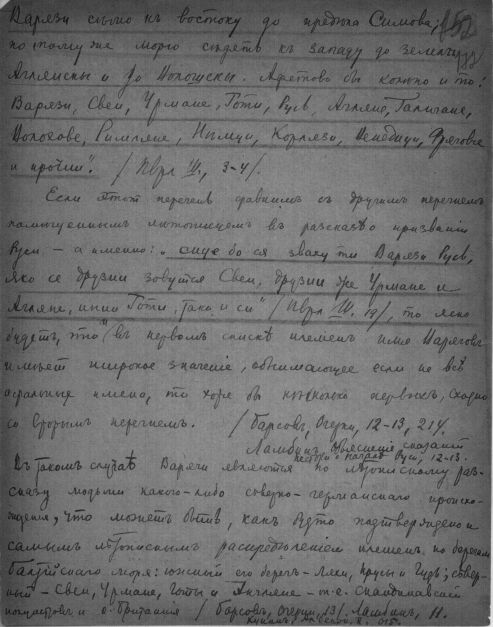 Варязи сѣмо къ востоку до предѣла Симова;
по тому же морю сѣдять къ западу до земли
Агляньски и до Волошски. Афетово бо колѣно и то:
Варязи, Свеи, Урмане, Готи, Русь, Агляне, Галичане,
Волохове, Римляне, Нѣмци, Корлязи, Венедици, Фрягове
и прочии". / Пврл III, 3-4/.
Если этот перечень сравнимъ съ другимъ перечнемъ
помѣщеннымъ лѣтописцемъ въ разсказѣ о призваніи
Руси, — а именно: „сице бо ся зваху ти Варязи Русь,
яко се друзии зовутся Свеи, друзии же Урмане и
Агляне, инии Готи, тако и си" / Пврл III, 19/, то ясно
будетъ, что въ первомъ спискѣ племенъ имя Варяговъ
имѣетъ широкое значеніе, обнимающее если не всѣ
остальные имена, то хотя бы нѣсколько первыхъ, сходно
со вторымъ перечнемъ. / Барсовъ, Очерки, 12-13, 214.
Ламбинъ, сказаній
о началѣ Руси, 12-13.
Въ такомъ случаѣ Варяги являются по лѣтописному раз-
сказу людьми какого-либо северно-германскаго происхо-
жденія, что можетъ быть, какъ будто подтверждено и
самымъ лѣтописнымъ распредѣленіемъ племенъ по берегамъ
Балтійскаго моря: южный его берегъ - Ляхи, Прусы и Чудь; сѣвер-
ный - Свеи, Урмане, Готы и Англяне - т.е. Скандинавскій
полуостровъ и о. Британія / Барсовъ, Очерки, 13/. Ламбинъ, 11.